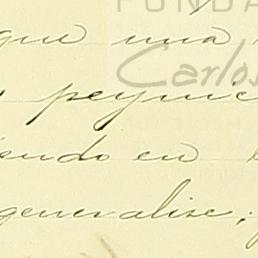 FUNDA
que una
Carlos
endo en
generalise;